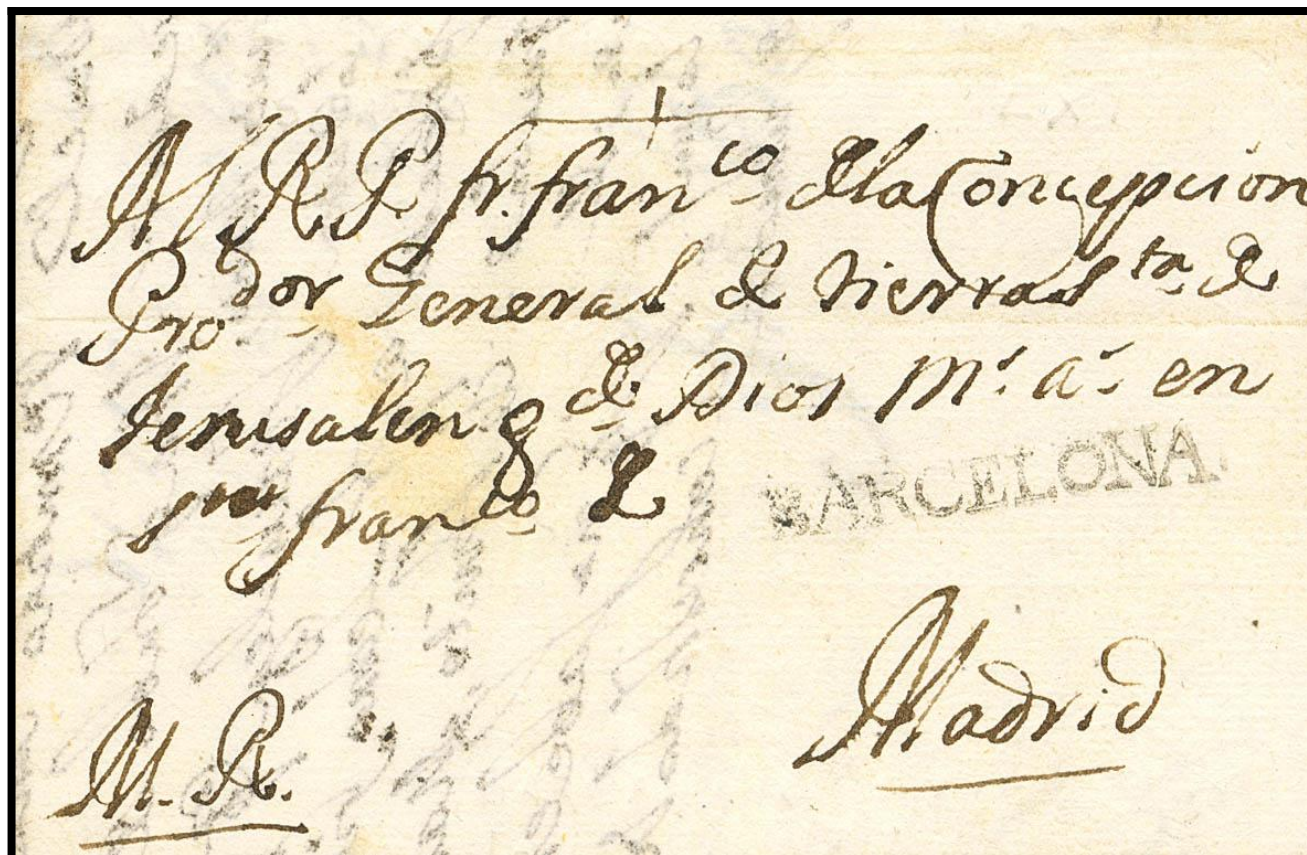 Al R. P. fr. franco de la Concepcion
Prodor General de tierra Sta de
Jerusalen gde Dios ms as en
Sn franco de
BARCELONA
Madrid
M. R.